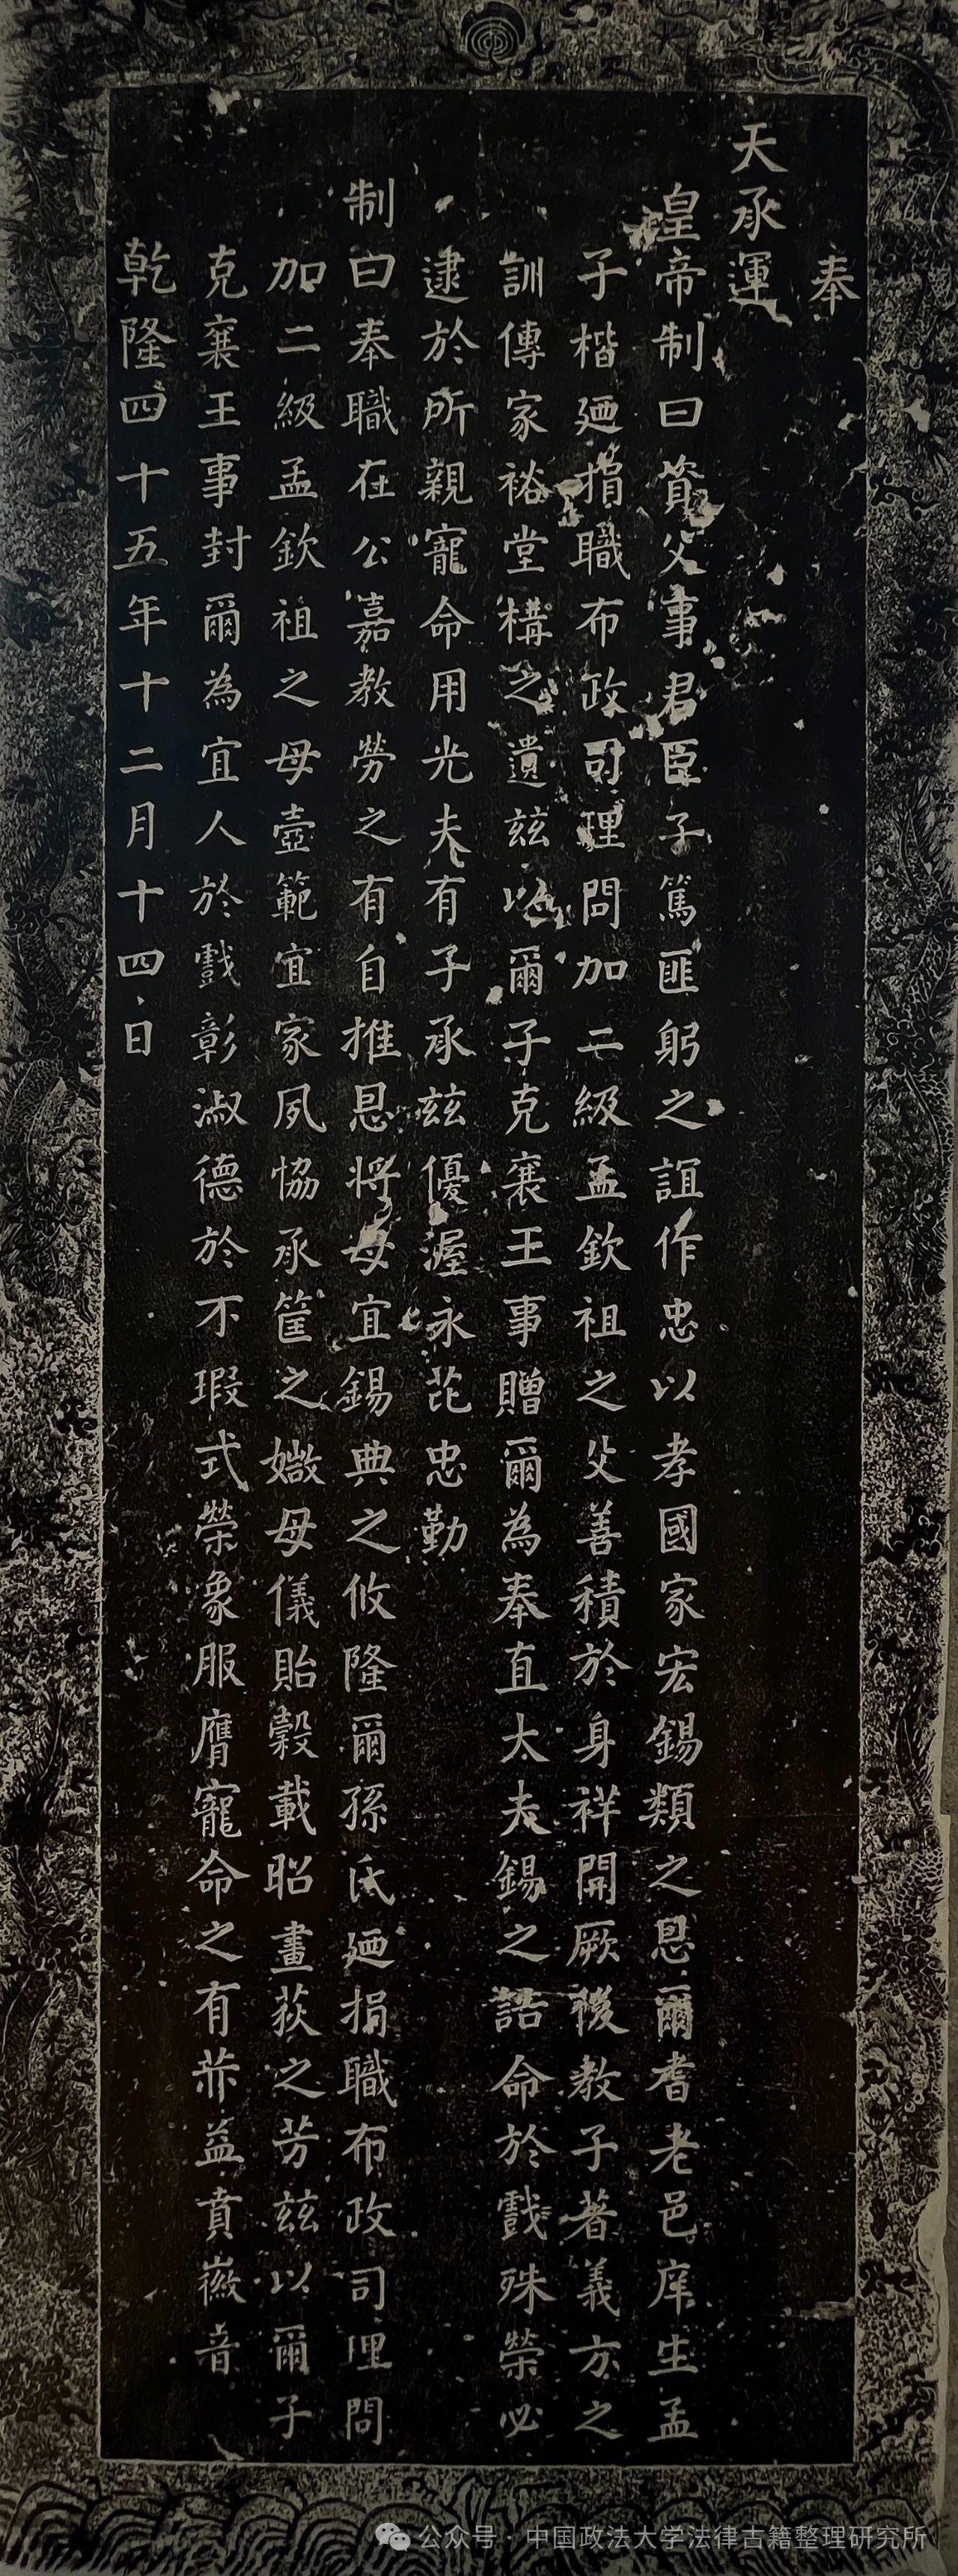 奉
天承運
皇帝制曰資父事君臣子篤匪躬之誼作忠以孝國家宏錫類之恩爾耆老邑庠生孟
子楷廼捐職布政司理問加二級孟欽祖之父善積於身祥開厥後教子著義方之
訓傳家裕堂構之遺茲以爾子克襄王事贈爾為奉直大夫錫之誥命於戲殊榮必
逮於所親寵命用光夫有子承茲優渥永芘忠勤
制曰奉職在公嘉教勞之有自推恩將母宜錫典之攸隆爾孫氏廼捐職布政司理問
加二級孟欽祖之母壼範宜家夙協承筐之媺母儀貽穀載昭畫荻之芳茲以爾子
克襄王事封爾為宜人於戲彰淑德於不瑕式榮象服膺寵命之有恭益賁徽音
乾隆四十五年十二月十四日
公众号·中国政法大学法律古籍整理研究所